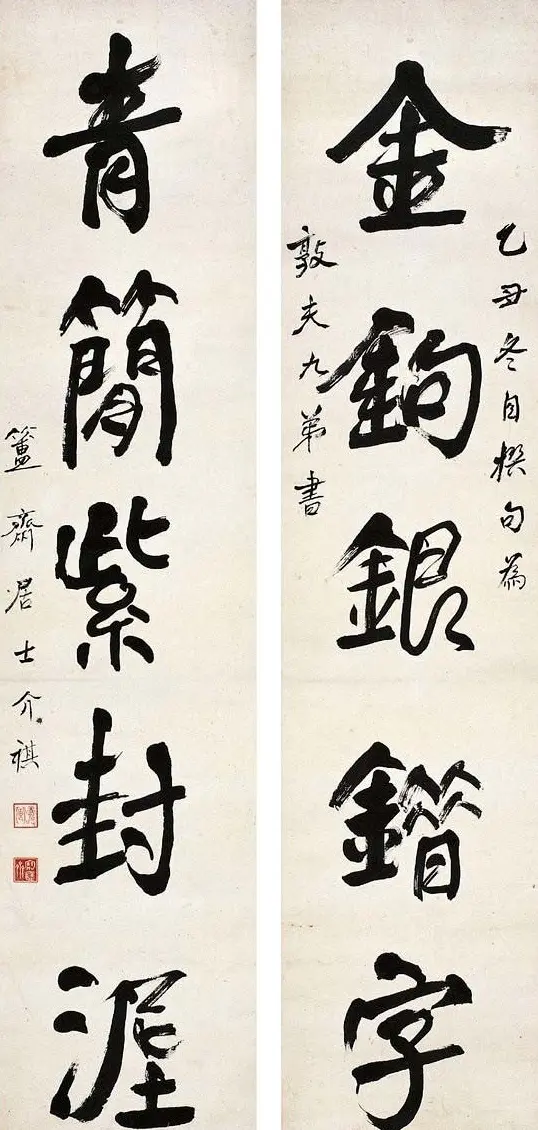 乙丑冬自撰句為
金鉤銀鐕字
敦夫九弟書
青簡紫封埿
簠齋居士介祺